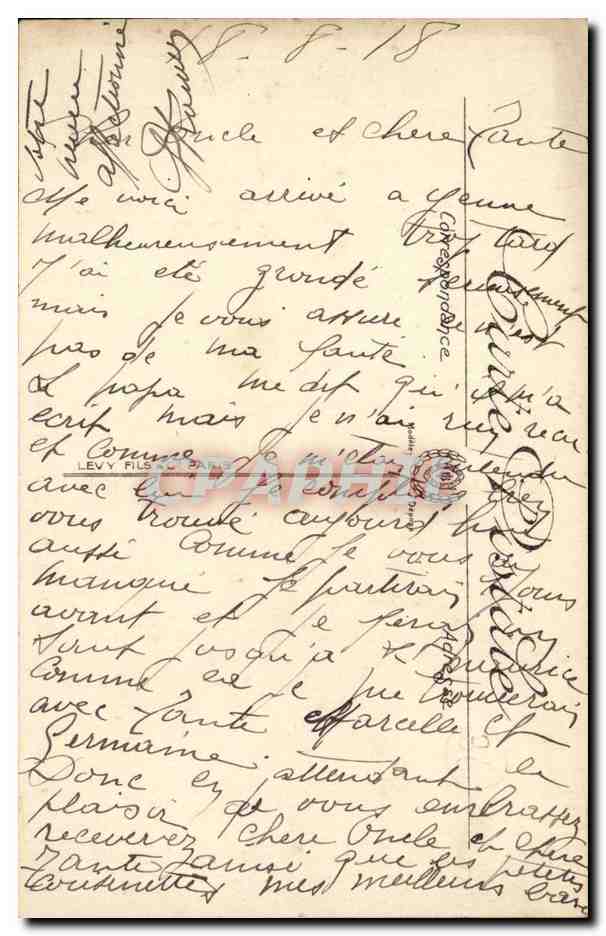 18-8-18
Cher Oncle et chere Tante
Me voici arrivé a Yenne
malheureusement trop tard
J'ai été grondé serieusement
mais je vous assure ce n'est
pas de ma faute
Le papa me dit qu'il m'a
ecrit mais je n'ai rien recu
et comme je m'etais entendu
avec lui je comptais bien
vous trouvé aujourd'hui
aussi comme je vous
manqué je partirai jours
avant et je ferai
saut jusqu'a St Maurice
comme ca je me trouverai
avec Tante Marcelle et
Germaine.
Donc en attendant le
plaisir de vous embrasser
recevez chere Oncle et chere
Tante ainsi que les petites
cousinettes mes meilleurs
Votre
neveu
affectionné
Carte Postale
Correspondance
Adresse
LEVY FILS & Cie PARIS
CPAPHIL